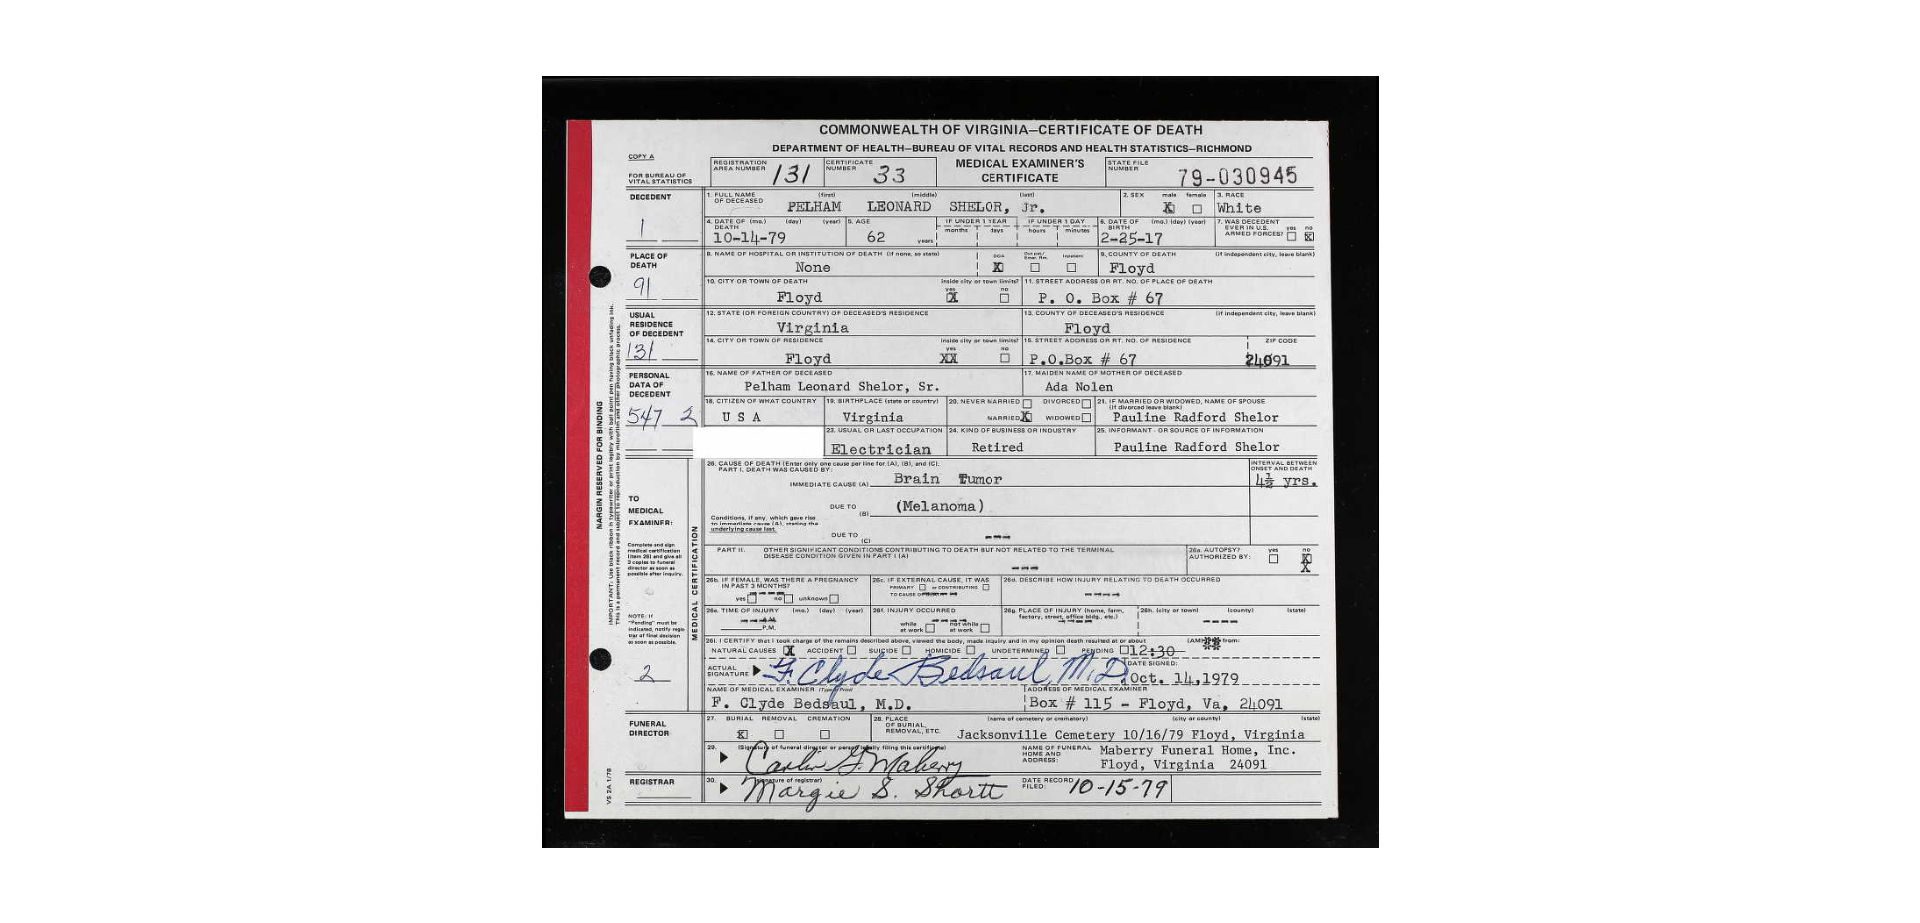 COMMONWEALTH OF VIRGINIA—CERTIFICATE OF DEATH
DEPARTMENT OF HEALTH—BUREAU OF VITAL RECORDS AND HEALTH STATISTICS—RICHMOND
COPY A
FOR BUREAU OF VITAL STATISTICS
REGISTRATION AREA NUMBER 131
CERTIFICATE NUMBER 33
MEDICAL EXAMINER'S CERTIFICATE
STATE FILE NUMBER 79-030945
DECEDENT
1
1. FULL NAME OF DECEASED (first) (middle) (last)
PELHAM LEONARD SHELOR, Jr.
2. SEX male X female
3. RACE White
4. DATE OF DEATH (mo.) (day) (year) 10-14-79
5. AGE 62 years
IF UNDER 1 YEAR months days
IF UNDER 1 DAY hours minutes
6. DATE OF BIRTH (mo.) (day) (year) 2-25-17
7. WAS DECEDENT EVER IN U.S. ARMED FORCES? yes no X
PLACE OF DEATH
91
8. NAME OF HOSPITAL OR INSTITUTION OF DEATH (if none, so state) None
DOA X Inpatient
9. COUNTY OF DEATH (if independent city, leave blank) Floyd
10. CITY OR TOWN OF DEATH Floyd
inside city or town limits? yes X no
11. STREET ADDRESS OR RT. NO. OF PLACE OF DEATH P. O. Box # 67
USUAL RESIDENCE OF DECEDENT
131
12. STATE (OR FOREIGN COUNTRY) OF DECEASED'S RESIDENCE Virginia
13. COUNTY OF DECEASED'S RESIDENCE (if independent city, leave blank) Floyd
14. CITY OR TOWN OF RESIDENCE Floyd
inside city or town limits? yes XX no
15. STREET ADDRESS OR RT. NO. OF RESIDENCE P.O.Box # 67
ZIP CODE 24091
PERSONAL DATA OF DECEDENT
547 2
16. NAME OF FATHER OF DECEASED Pelham Leonard Shelor, Sr.
17. MAIDEN NAME OF MOTHER OF DECEASED Ada Nolen
18. CITIZEN OF WHAT COUNTRY U S A
19. BIRTHPLACE (state or country) Virginia
20. NEVER MARRIED DIVORCED MARRIED X WIDOWED
21. IF MARRIED OR WIDOWED, NAME OF SPOUSE (if divorced leave blank) Pauline Radford Shelor
23. USUAL OR LAST OCCUPATION Electrician
24. KIND OF BUSINESS OR INDUSTRY Retired
25. INFORMANT - OR SOURCE OF INFORMATION Pauline Radford Shelor
MARGIN RESERVED FOR BINDING
TO MEDICAL EXAMINER:
Complete and sign medical certification (item 26) and give all 3 copies to funeral director as soon as possible after inquiry.
NOTE: If "Pending" must be indicated, notify registrar of final decision as soon as possible.
2
MEDICAL CERTIFICATION
26. CAUSE OF DEATH (Enter only one cause per line for (A), (B), and (C).
PART I. DEATH WAS CAUSED BY:
IMMEDIATE CAUSE (A) Brain Tumor
INTERVAL BETWEEN ONSET AND DEATH 4½ yrs.
DUE TO (B) (Melanoma)
Conditions, if any, which gave rise to immediate cause (A), stating the underlying cause last.
DUE TO (C) ---
PART II. OTHER SIGNIFICANT CONDITIONS CONTRIBUTING TO DEATH BUT NOT RELATED TO THE TERMINAL DISEASE CONDITION GIVEN IN PART I (A) ---
26a. AUTOPSY? AUTHORIZED BY: yes no X X
26b. IF FEMALE, WAS THERE A PREGNANCY IN PAST 3 MONTHS? yes no unknown
26c. IF EXTERNAL CAUSE, IT WAS PRIMARY or CONTRIBUTING TO CAUSE OF
26d. DESCRIBE HOW INJURY RELATING TO DEATH OCCURRED ----
26e. TIME OF INJURY (mo.) (day) (year) A.M. P.M.
26f. INJURY OCCURRED while at work not while at work
26g. PLACE OF INJURY (home, farm, factory, street, office bldg., etc.) ----
26h. (city or town) (county) (state) ----
26i. I CERTIFY that I took charge of the remains described above, viewed the body, made inquiry and in my opinion death resulted at or about 12:30 (AM) from:
NATURAL CAUSES X ACCIDENT SUICIDE HOMICIDE UNDETERMINED PENDING
ACTUAL SIGNATURE F. Clyde Bedsaul, M.D.
DATE SIGNED: Oct. 14,1979
NAME OF MEDICAL EXAMINER (Type or Print) F. Clyde Bedsaul, M.D.
ADDRESS OF MEDICAL EXAMINER Box # 115 - Floyd, Va, 24091
FUNERAL DIRECTOR
27. BURIAL X REMOVAL CREMATION
28. PLACE OF BURIAL, REMOVAL, ETC. (name of cemetery or crematory) (city or county) (state)
Jacksonville Cemetery 10/16/79 Floyd, Virginia
29. (Signature of funeral director or person legally filing this certificate)
Carlin G. Maberry
NAME OF FUNERAL HOME AND ADDRESS: Maberry Funeral Home, Inc.
Floyd, Virginia 24091
REGISTRAR
30. (signature of registrar)
Margie S. Shortt
DATE RECORD FILED: 10-15-79
VS 2A 1/78